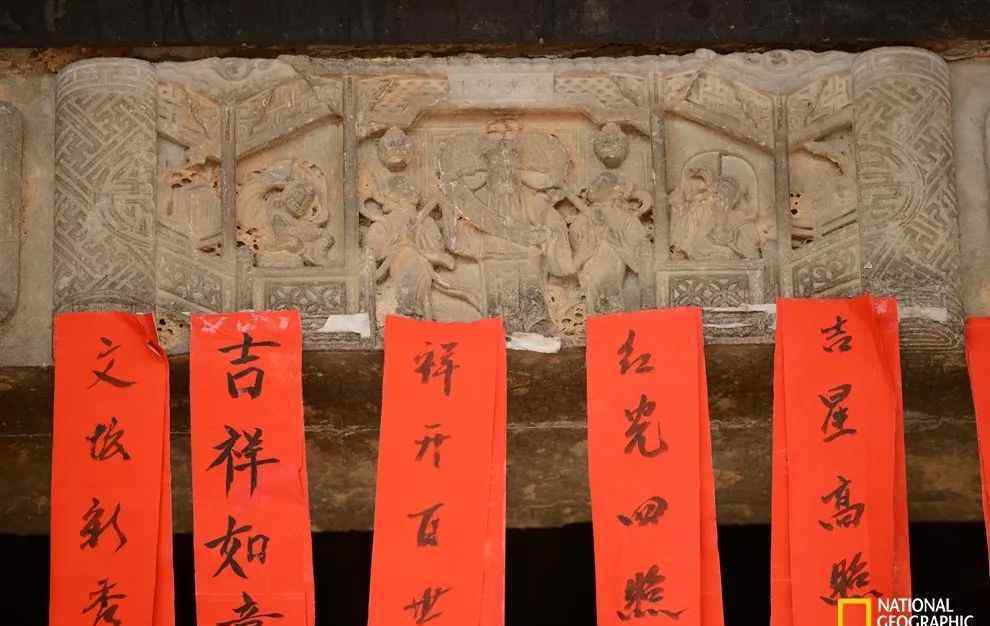 文坡新秀
吉祥如意
祥开百世
红光四照
吉星高照
NATIONAL
GEOGRAPHIC